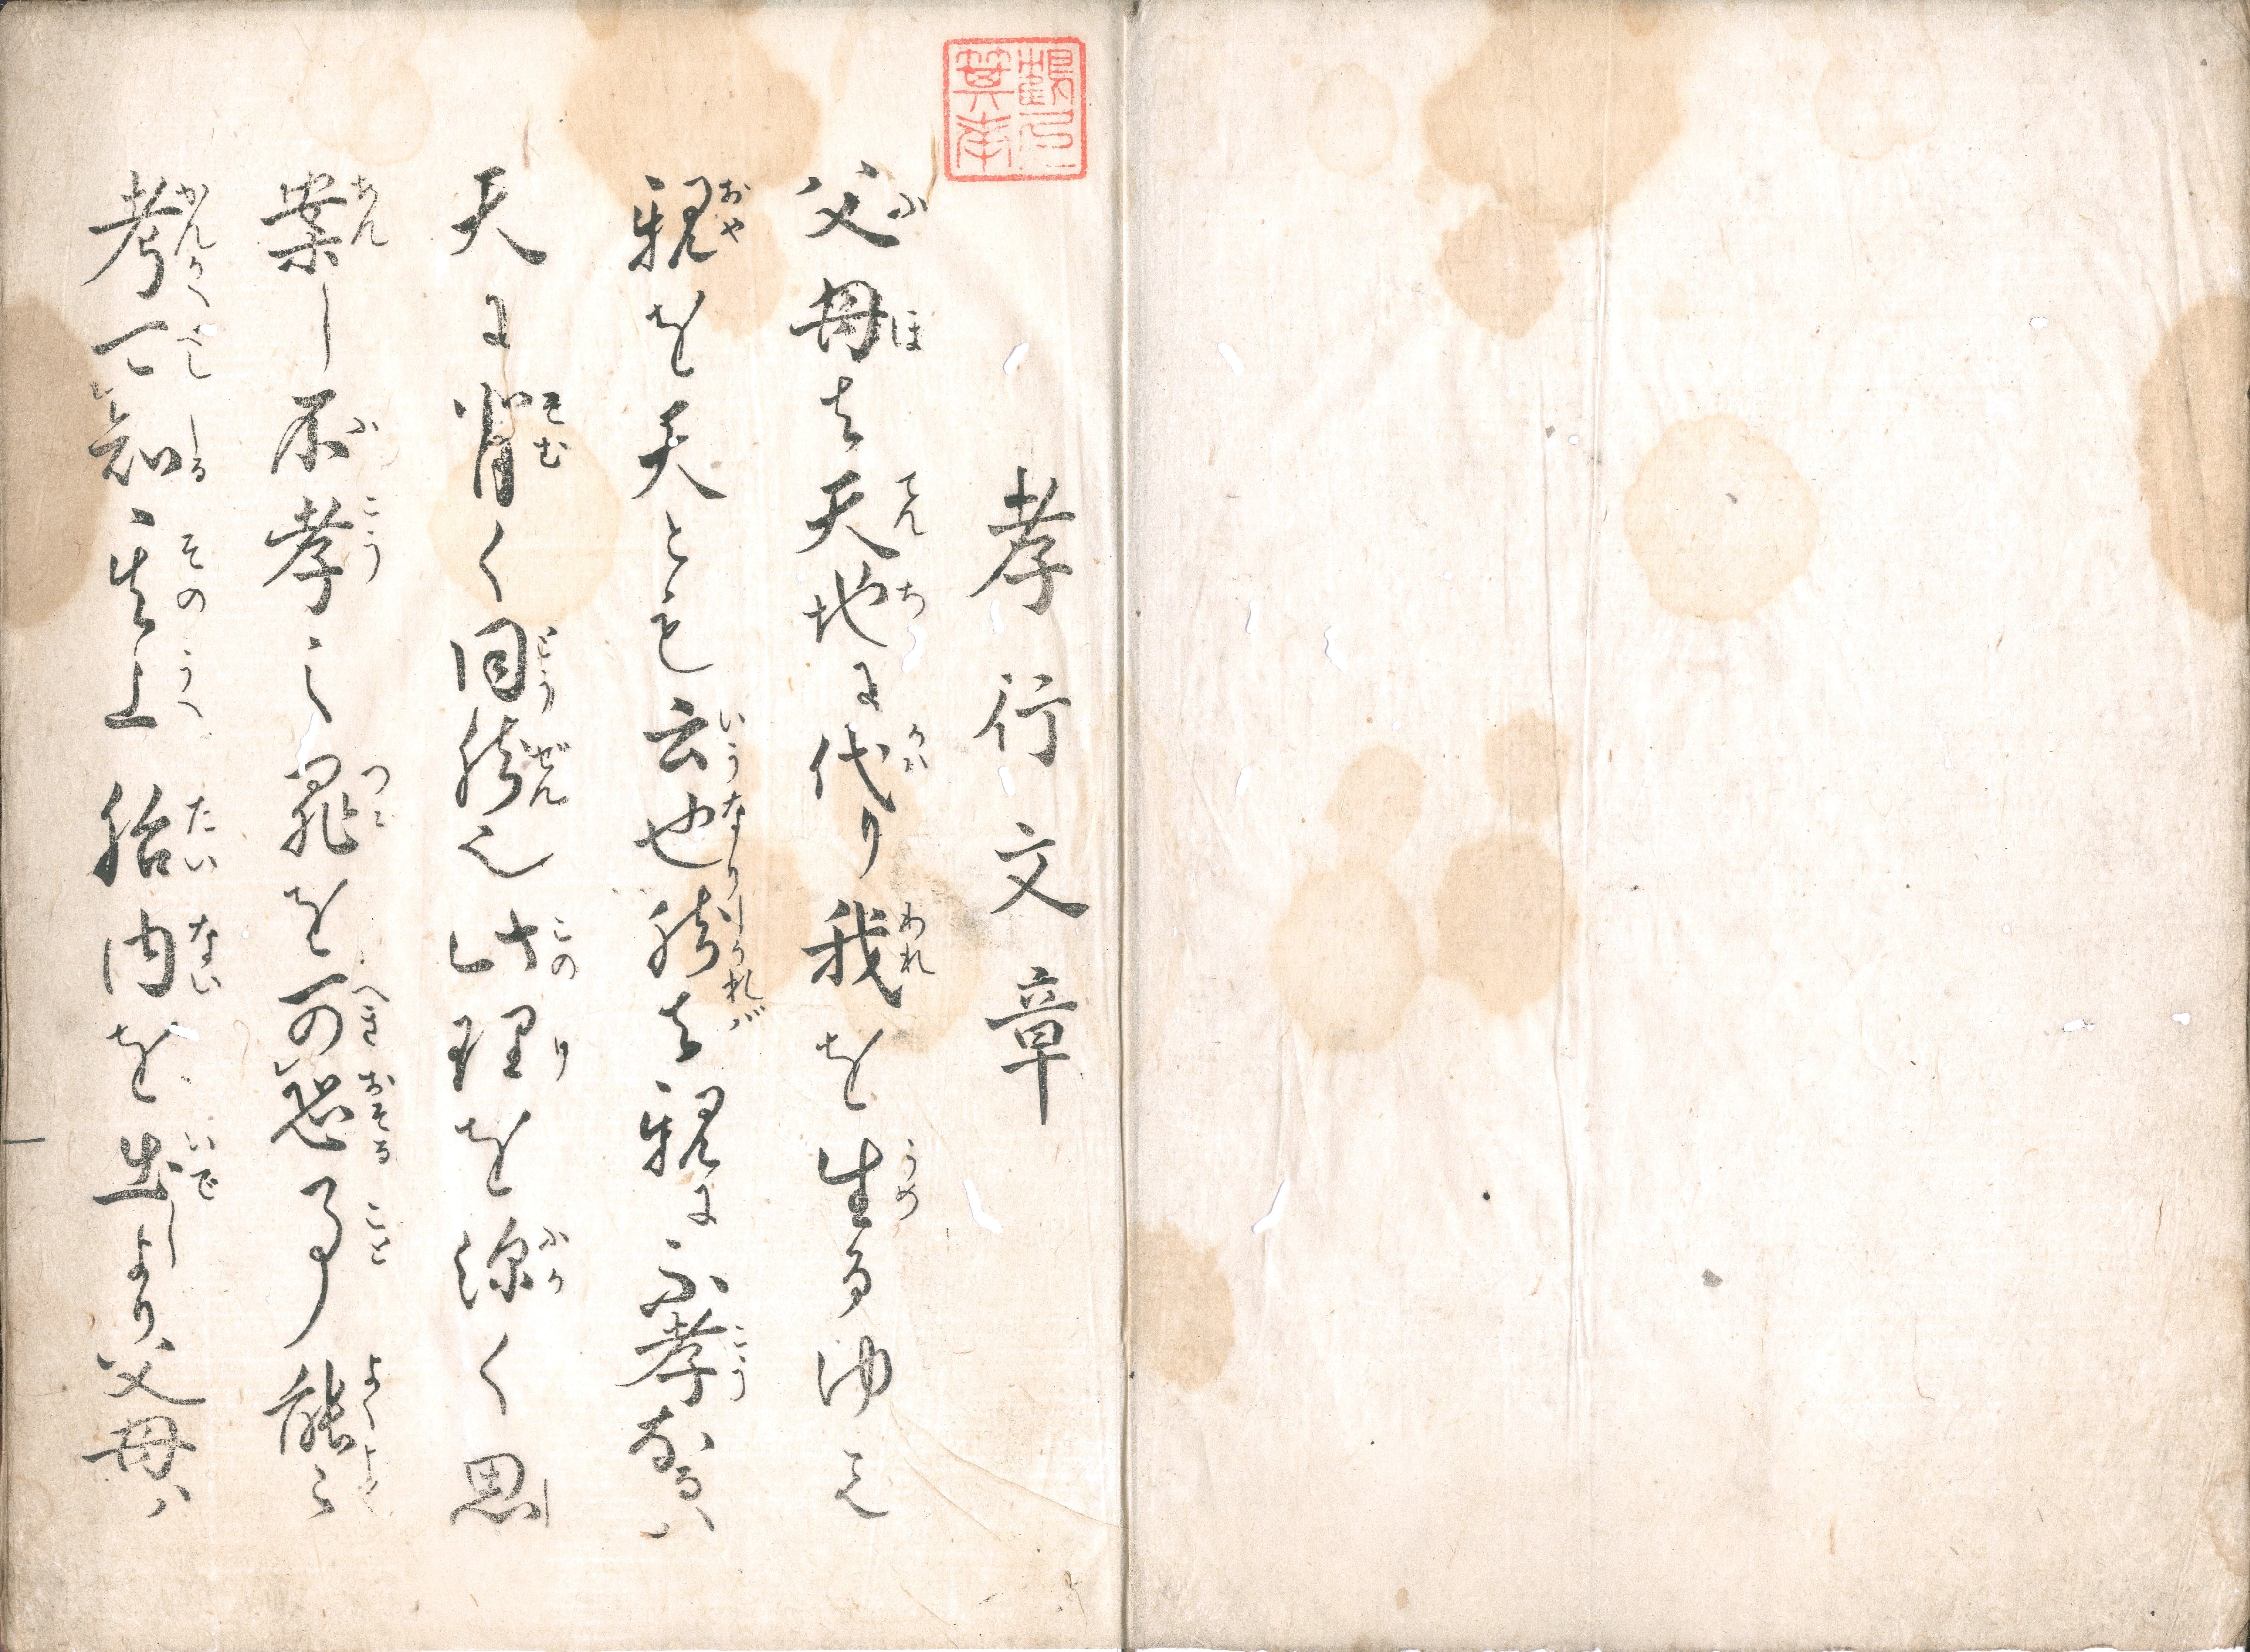 孝行文章
父母は天地に代り我を生るゆえ
親を天とも云也然は親に不孝なるハ
天に背く同然也此理を深く思
案し不孝之罪を可恐事能々
考可知其上胎内を出しより父母ハ